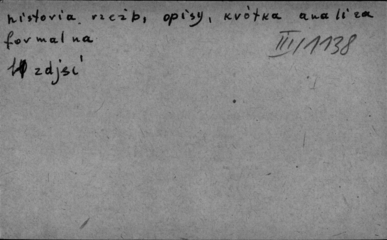 historia rzeźb, opisy, krótka analiza
formalna
III/1138
10 zdjęć